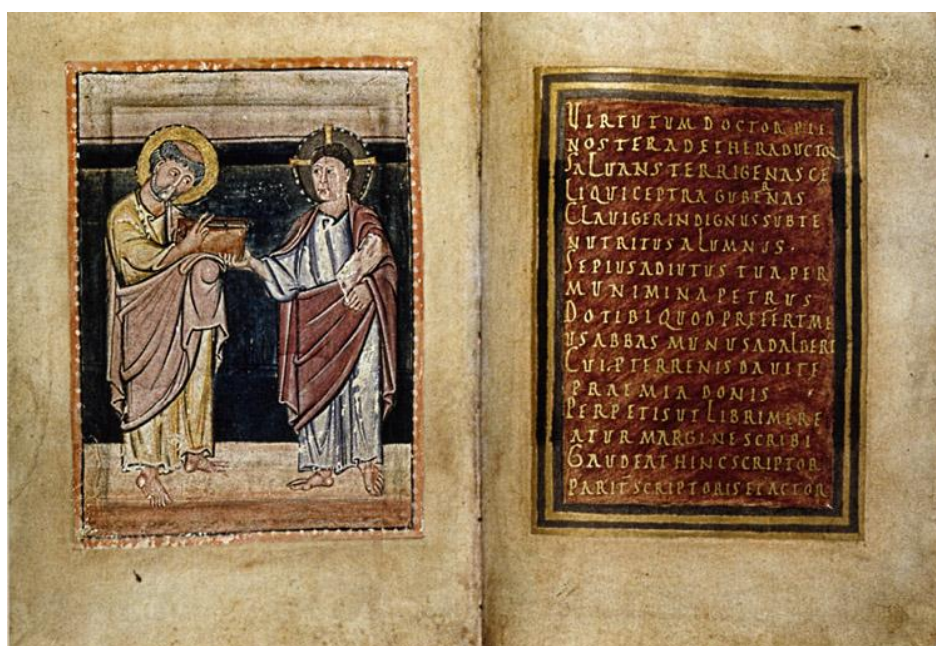 UIRTUTUM DOCTOR PIE
NOSTER AD ETHERA DUCTOR
SALUANS TERRIGENAS CE
LI QUI CEPTRA GUBERNAS
CLAUIGER INDIGNUS SUB TE
NUTRITUS ALUMNUS·
SEPIUS ADIUTUS TUA PER
MUNIMINA PETRUS
DO TIBI QUOD PREFERT ME
US ABBAS MUNUS ADALBERT
CUI P TERRENIS DA UITE
PRAEMIA DONIS
PERPETIS UT LIBRI MERE
ATUR MARGINE SCRIBI
GAUDEAT HINC SCRIPTOR
PARIT SCRIPTORIS ET ACTOR